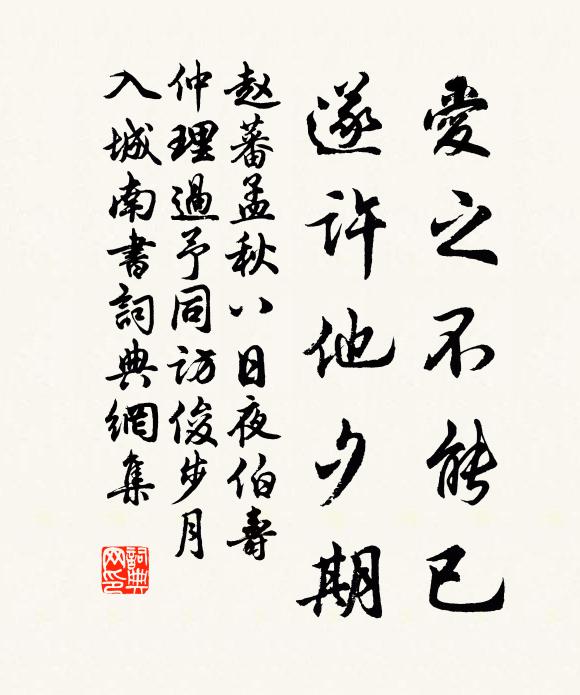 愛之不能已
遂許他夕期
赵蕃孟秋八日夜伯壽
仲理過予同訪俊步月
入城南書詞典網集
詞典网印